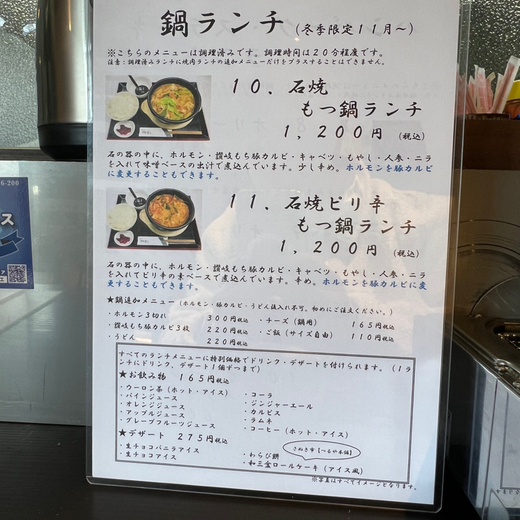 鍋ランチ（冬季限定１１月～）
※こちらのメニューは調理済みです。調理時間は２０分程度です。
注意：調理済みランチに焼肉ランチの追加メニューだけをプラスすることはできません。
１０．石焼
もつ鍋ランチ
１,２００円（税込）
石の器の中に、ホルモン・讃岐もち豚カルビ・キャベツ・もやし・人参・ニラ
を入れて味噌ベースの出汁で煮込んでいます。少し辛め。ホルモンを豚カルビ
に変更することもできます。
１１．石焼ピリ辛
もつ鍋ランチ
１,２００円（税込）
石の器の中に、ホルモン・讃岐もち豚カルビ・キャベツ・もやし・人参・ニラ
を入れてピリ辛の素ベースで煮込んでいます。辛め。ホルモンを豚カルビに変
更することもできます。
★鍋追加メニュー（ホルモン・豚カルビ・うどん後入れ不可。初めにご注文ください。）
・ホルモン３切れ ３００円税込
・讃岐もち豚カルビ３枚 ２２０税込
・うどん ２２０税込
・チーズ（鍋用） １６５税込
・ご飯（サイズ自由） １１０税込
すべてのランチメニューに特別価格でドリンク・デザートを付けられます。（１ラ
ンチにドリンク、デザート１個ずつまで）
★お飲み物 １６５円税込
・ウーロン茶（ホット・アイス）
・パインジュース
・オレンジジュース
・アップルジュース
・グレープフルーツジュース
・コーラ
・ジンジャーエール
・カルピス
・ラムネ
・コーヒー（ホット・アイス）
★デザート ２７５円税込
・生チョコバニラアイス
・生チョコアイス
・わらび餅
・和三盆ロールケーキ（アイス風）
※写真はすべてイメージとなります。